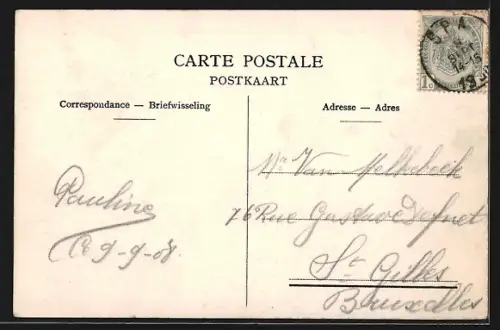 CARTE POSTALE
POSTKAART
Correspondance — Briefwisseling
Adresse — Adres
SPA
Pauline
9-9-08.
Mr Van Melkebeek
76 Rue Gustave Defnet
St Gilles
Bruxelles